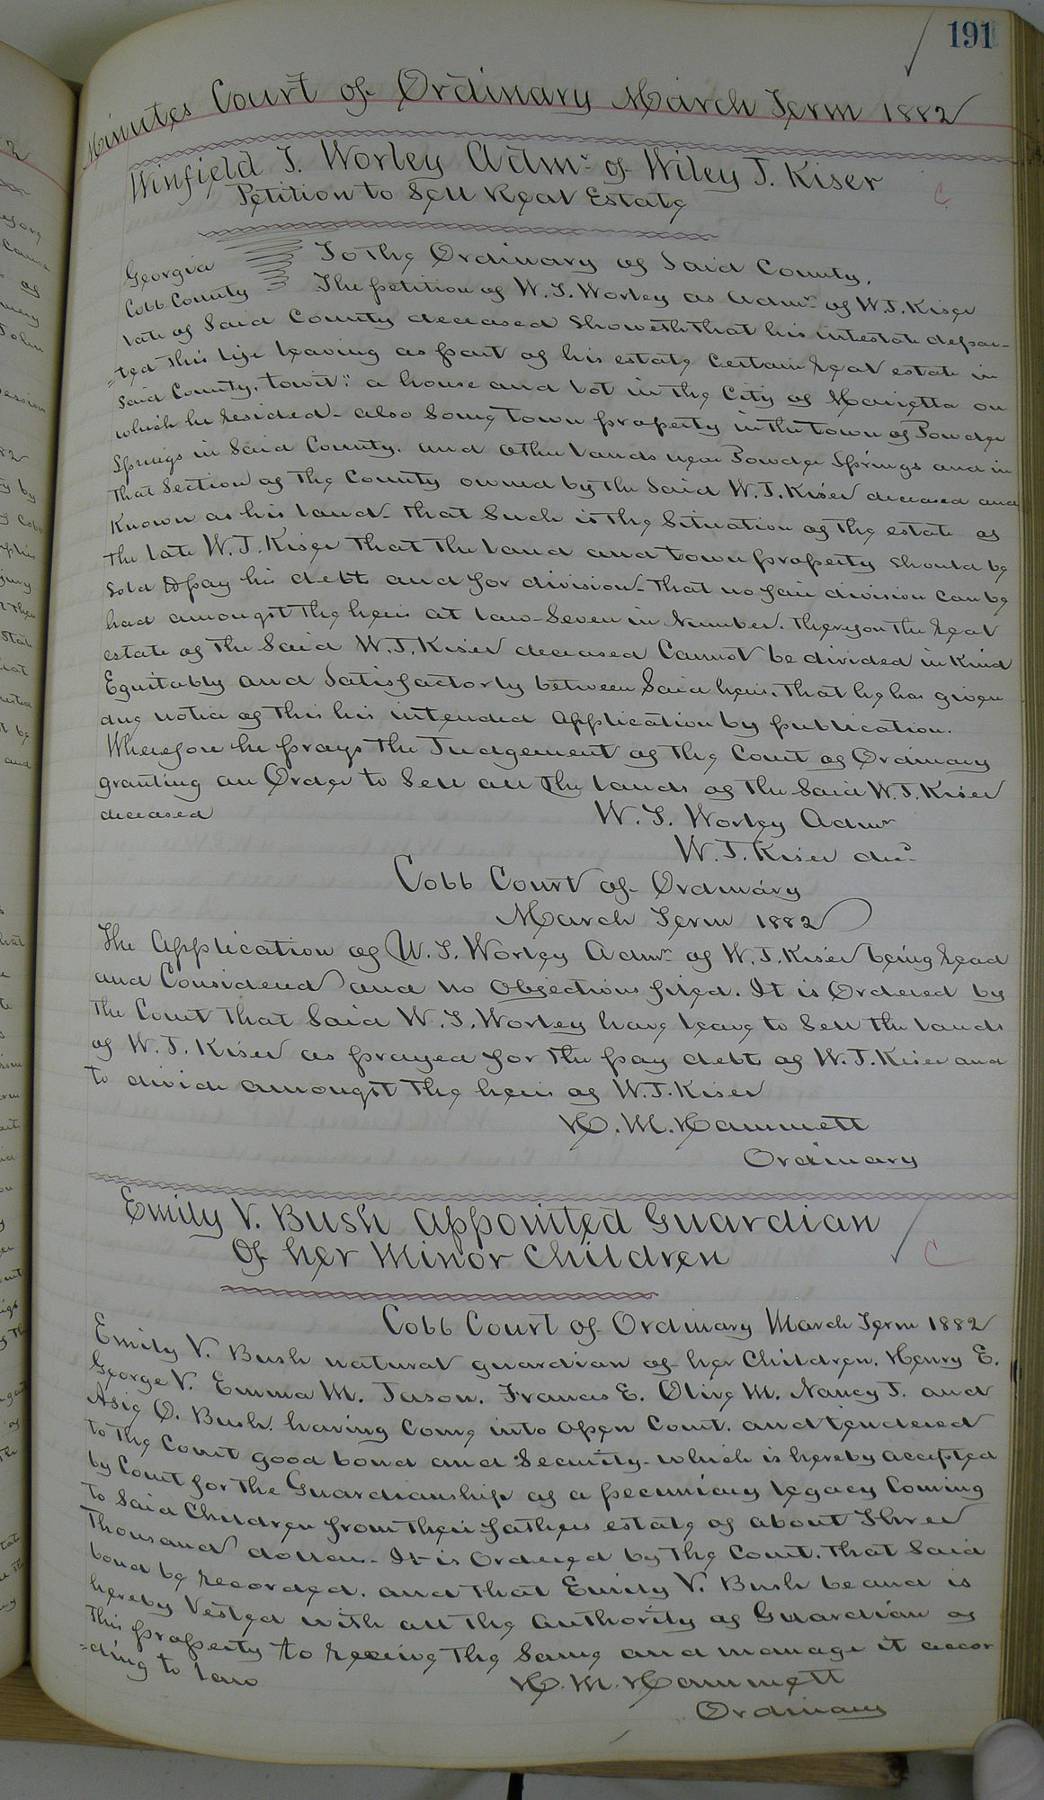 191
Minutes Court of Ordinary March Term 1882
Winfield S. Worley Admr of Wiley J. Kiser
Petition to Sell Real Estate
Georgia To the Ordinary of Said County,
Cobb County The petition of W. S. Worley as Admr of W. J. Kiser
late of Said County deceased Showeth that his intestate depar-
=ted this life leaving as part of his estate Certain Real estate in
Said County, towit: a house and lot in the City of Marietta on
which he resided - also Some town property in the town of Powder
Springs in Said County. and other lands near Powder Springs and in
that Section of the County owned by the Said W. J. Kiser deceased and
Known as his land - that Such is the Situation of the estate of
the late W. J. Kiser that the land and town property should be
Sold to pay his debts and for division - that no fair division can be
had amongst the heirs at law - Seven in Number. therefor the Real
estate of the Said W. J. Kiser deceased Cannot be divided in Kind
Equitably and Satisfactorly between Said heirs. that he has given
due notice of this his intended application by publication.
Wherefore he prays the Judgement of the Court of Ordinary
granting an Order to Sell all the lands of the Said W. J. Kiser
deceased W. S. Worley Admr
W. J. Kiser decd
Cobb Court of Ordinary
March Term 1882
The Application of W. S. Worley Admr of W. J. Kiser being Read
and Considered and no Objections filed. It is Ordered by
the Court that Said W. S. Worley have leave to Sell the lands
of W. J. Kiser as prayed for the pay debt of W. J. Kiser and
to divide amongst the heirs of W. J. Kiser
H. M. Hammett
Ordinary
Emily V. Bush appointed Guardian
Of her Minor Children
Cobb Court of Ordinary March Term 1882
Emily V. Bush natural guardian of her Children. Henry E.
George V. Emma M. Jason. Francis E. Olive M. Nancy J. and
Asie O. Bush. having Come into open Court. and tendered
to the Court good bond and Security - which is hereby accepted
by Court for the Guardianship of a pecuniary legacy Coming
to Said Children from their fathers estate of about Three
Thousand dollars - It is Ordered by the Court. that Said
bond be recorded. and that Emily V. Bush be and is
hereby Vested with all the authority of Guardian of
this property to receive the Same and manage it accor
=ding to law H. M. Hammett
Ordinary